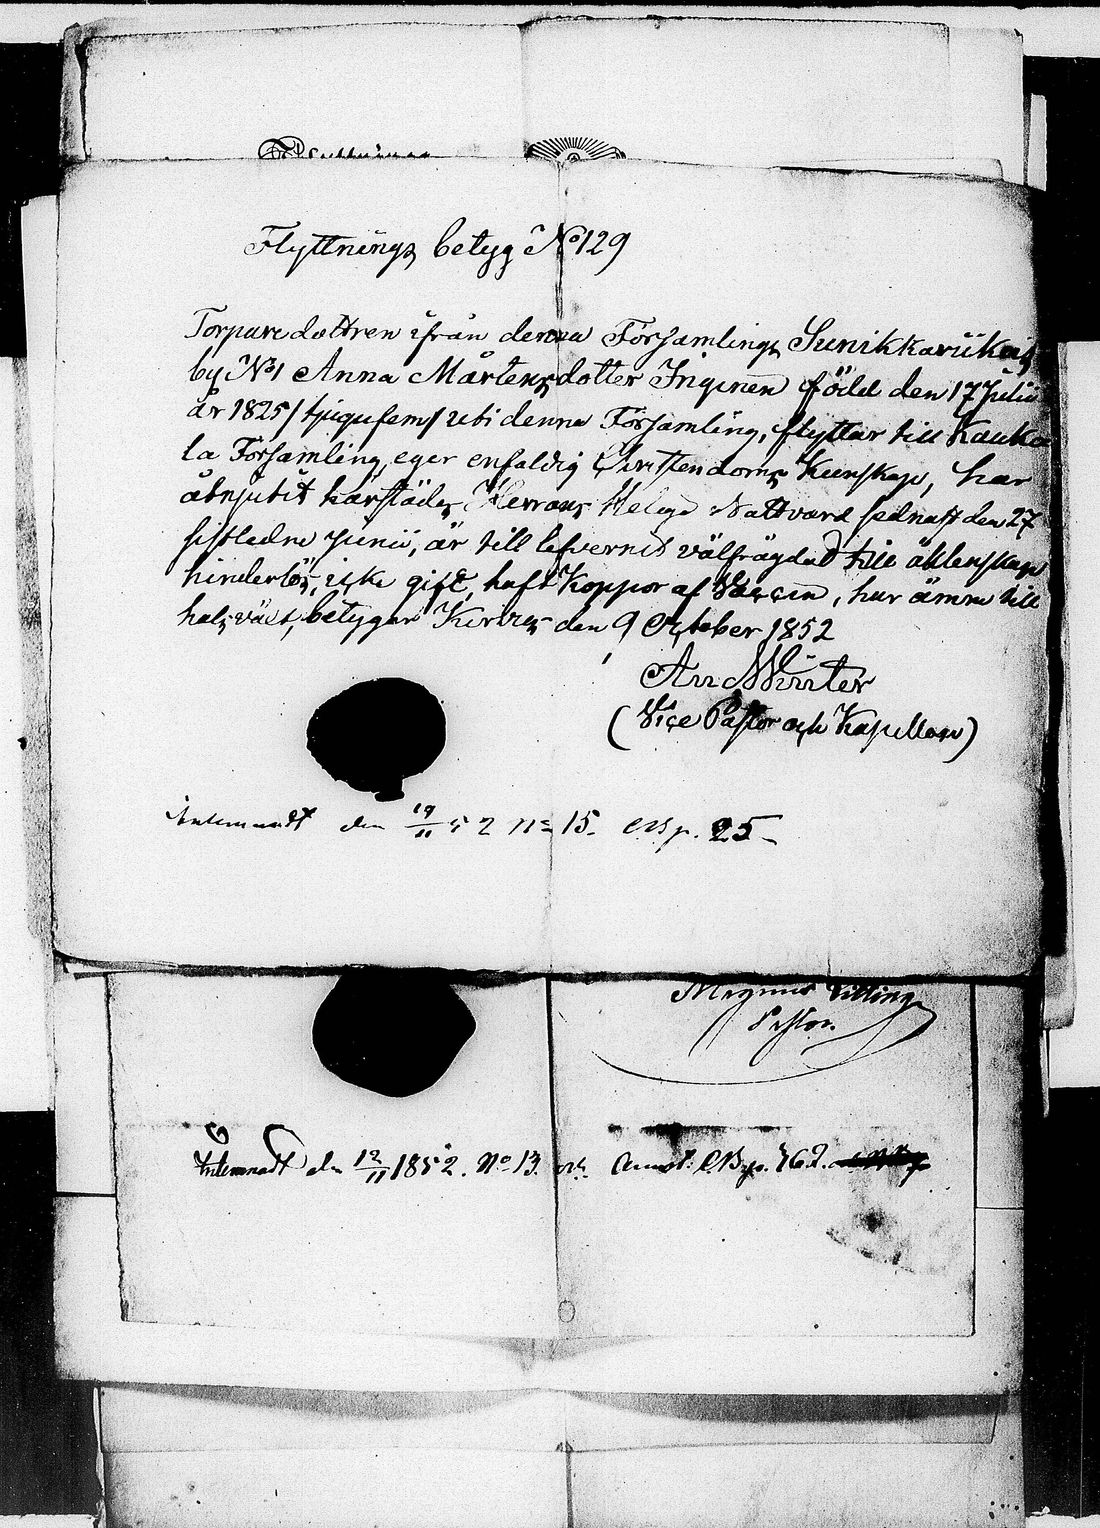 Flyttnings betyg No 129
Torpare dottren ifrån denna Församlings Sunikkariikas
by No1 Anna Mårtensdotter Inginen född den 17 Julii
år 1825/tjugufem/uti denna Församling, flyttar till Kauko
la Församling, eger enfaldig Christendoms Kunskap, har
åtnjutit härstädes Herrans Helga Nattvard sednast den 27
sistledne Junii, är till lefvernet välfrägdad till äktenskap
hinderlös, icke gift, haft Koppor af Vaccin, har ämne till
hals växt, betygar Kirvus den 9 October 1852
And Winter
(Vice Pastor och Kapellan)
Inlemnadt den 19/11 52 No 15. p. 25
Magnus
Pastor.
Inlemnadt den 12/11 1852. No 13. och p. 762.